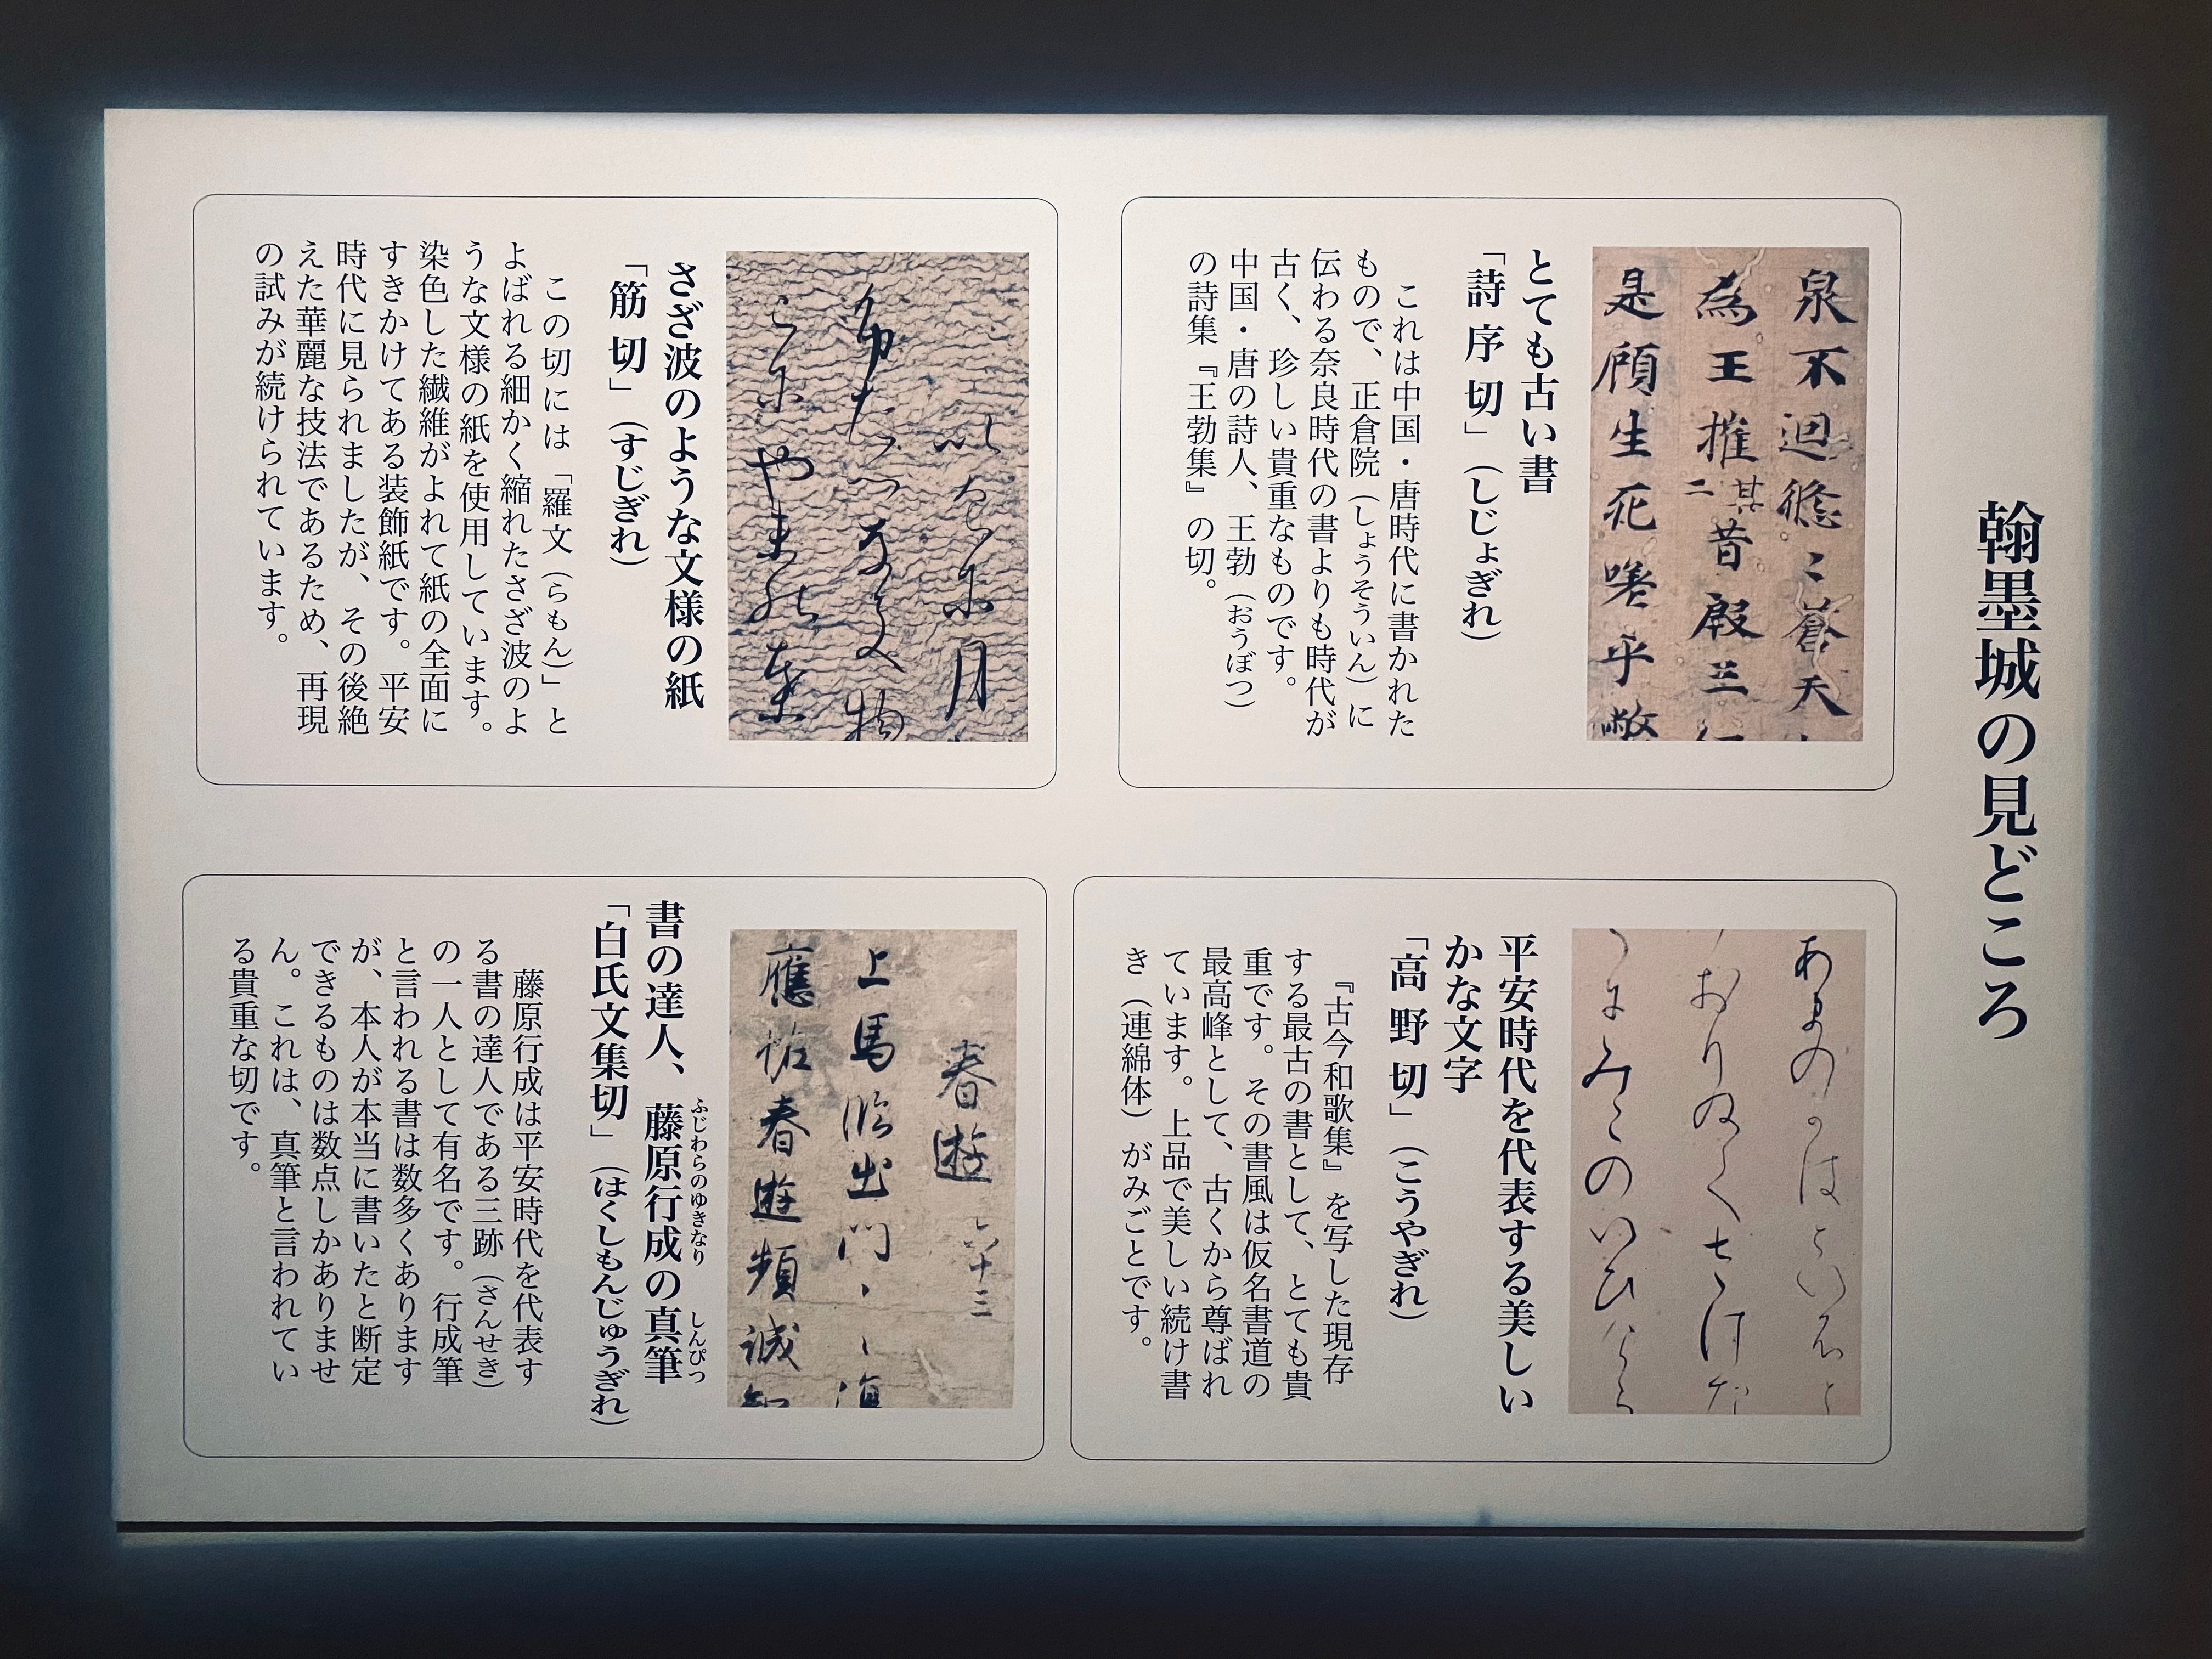 翰墨城の見どころ
泉不迴 蒼天
為王摧其二昔殷三
是頋生死嗟乎
とても古い書
「詩序切」（しじょぎれ）
これは中国・唐時代に書かれた
もので、正倉院（しょうそういん）に
伝わる奈良時代の書よりも時代が
古く、珍しい貴重なものです。
中国・唐の詩人、王勃（おうぼつ）
の詩集『王勃集』の切。
さざ波のような文様の紙
「筋切」（すじぎれ）
この切には「羅文（らもん）」と
よばれる細かく縮れたさざ波のよ
うな文様の紙を使用しています。
染色した繊維がよれて紙の全面に
すきかけてある装飾紙です。平安
時代に見られましたが、その後絶
えた華麗な技法であるため、再現
の試みが続けられています。
平安時代を代表する美しい
かな文字
「高野切」（こうやぎれ）
『古今和歌集』を写した現存
する最古の書として、とても貴
重です。その書風は仮名書道の
最高峰として、古くから尊ばれ
ています。上品で美しい続け書
き（連綿体）がみごとです。
春遊 六十三
上馬臨出門
應恠春遊頻誠
書の達人、藤原行成の真筆
ふじわらのゆきなり しんぴつ
「白氏文集切」（はくしもんじゅうぎれ）
藤原行成は平安時代を代表す
る書の達人である三跡（さんせき）
の一人として有名です。行成筆
と言われる書は数多くあります
が、本人が本当に書いたと断定
できるものは数点しかありませ
ん。これは、真筆と言われてい
る貴重な切です。